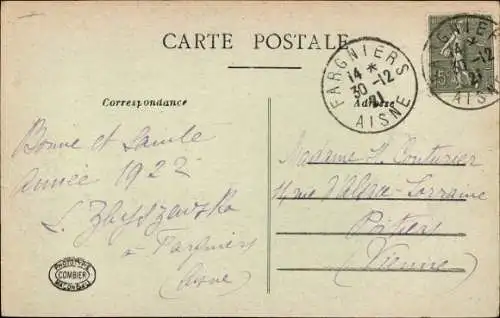 CARTE POSTALE
Correspondance
Adresse
FARGNIERS
14 *
30-12
21
AISNE
GNIER
14 *
30-12
21
AISNE
15
Bonne et Sainte
Année 1922
à Fargniers
Aisne
Madame
rue d'Alsace-Lorraine
Poitiers
(Vienne)
PHOTOTYPIE
COMBIER
MACON